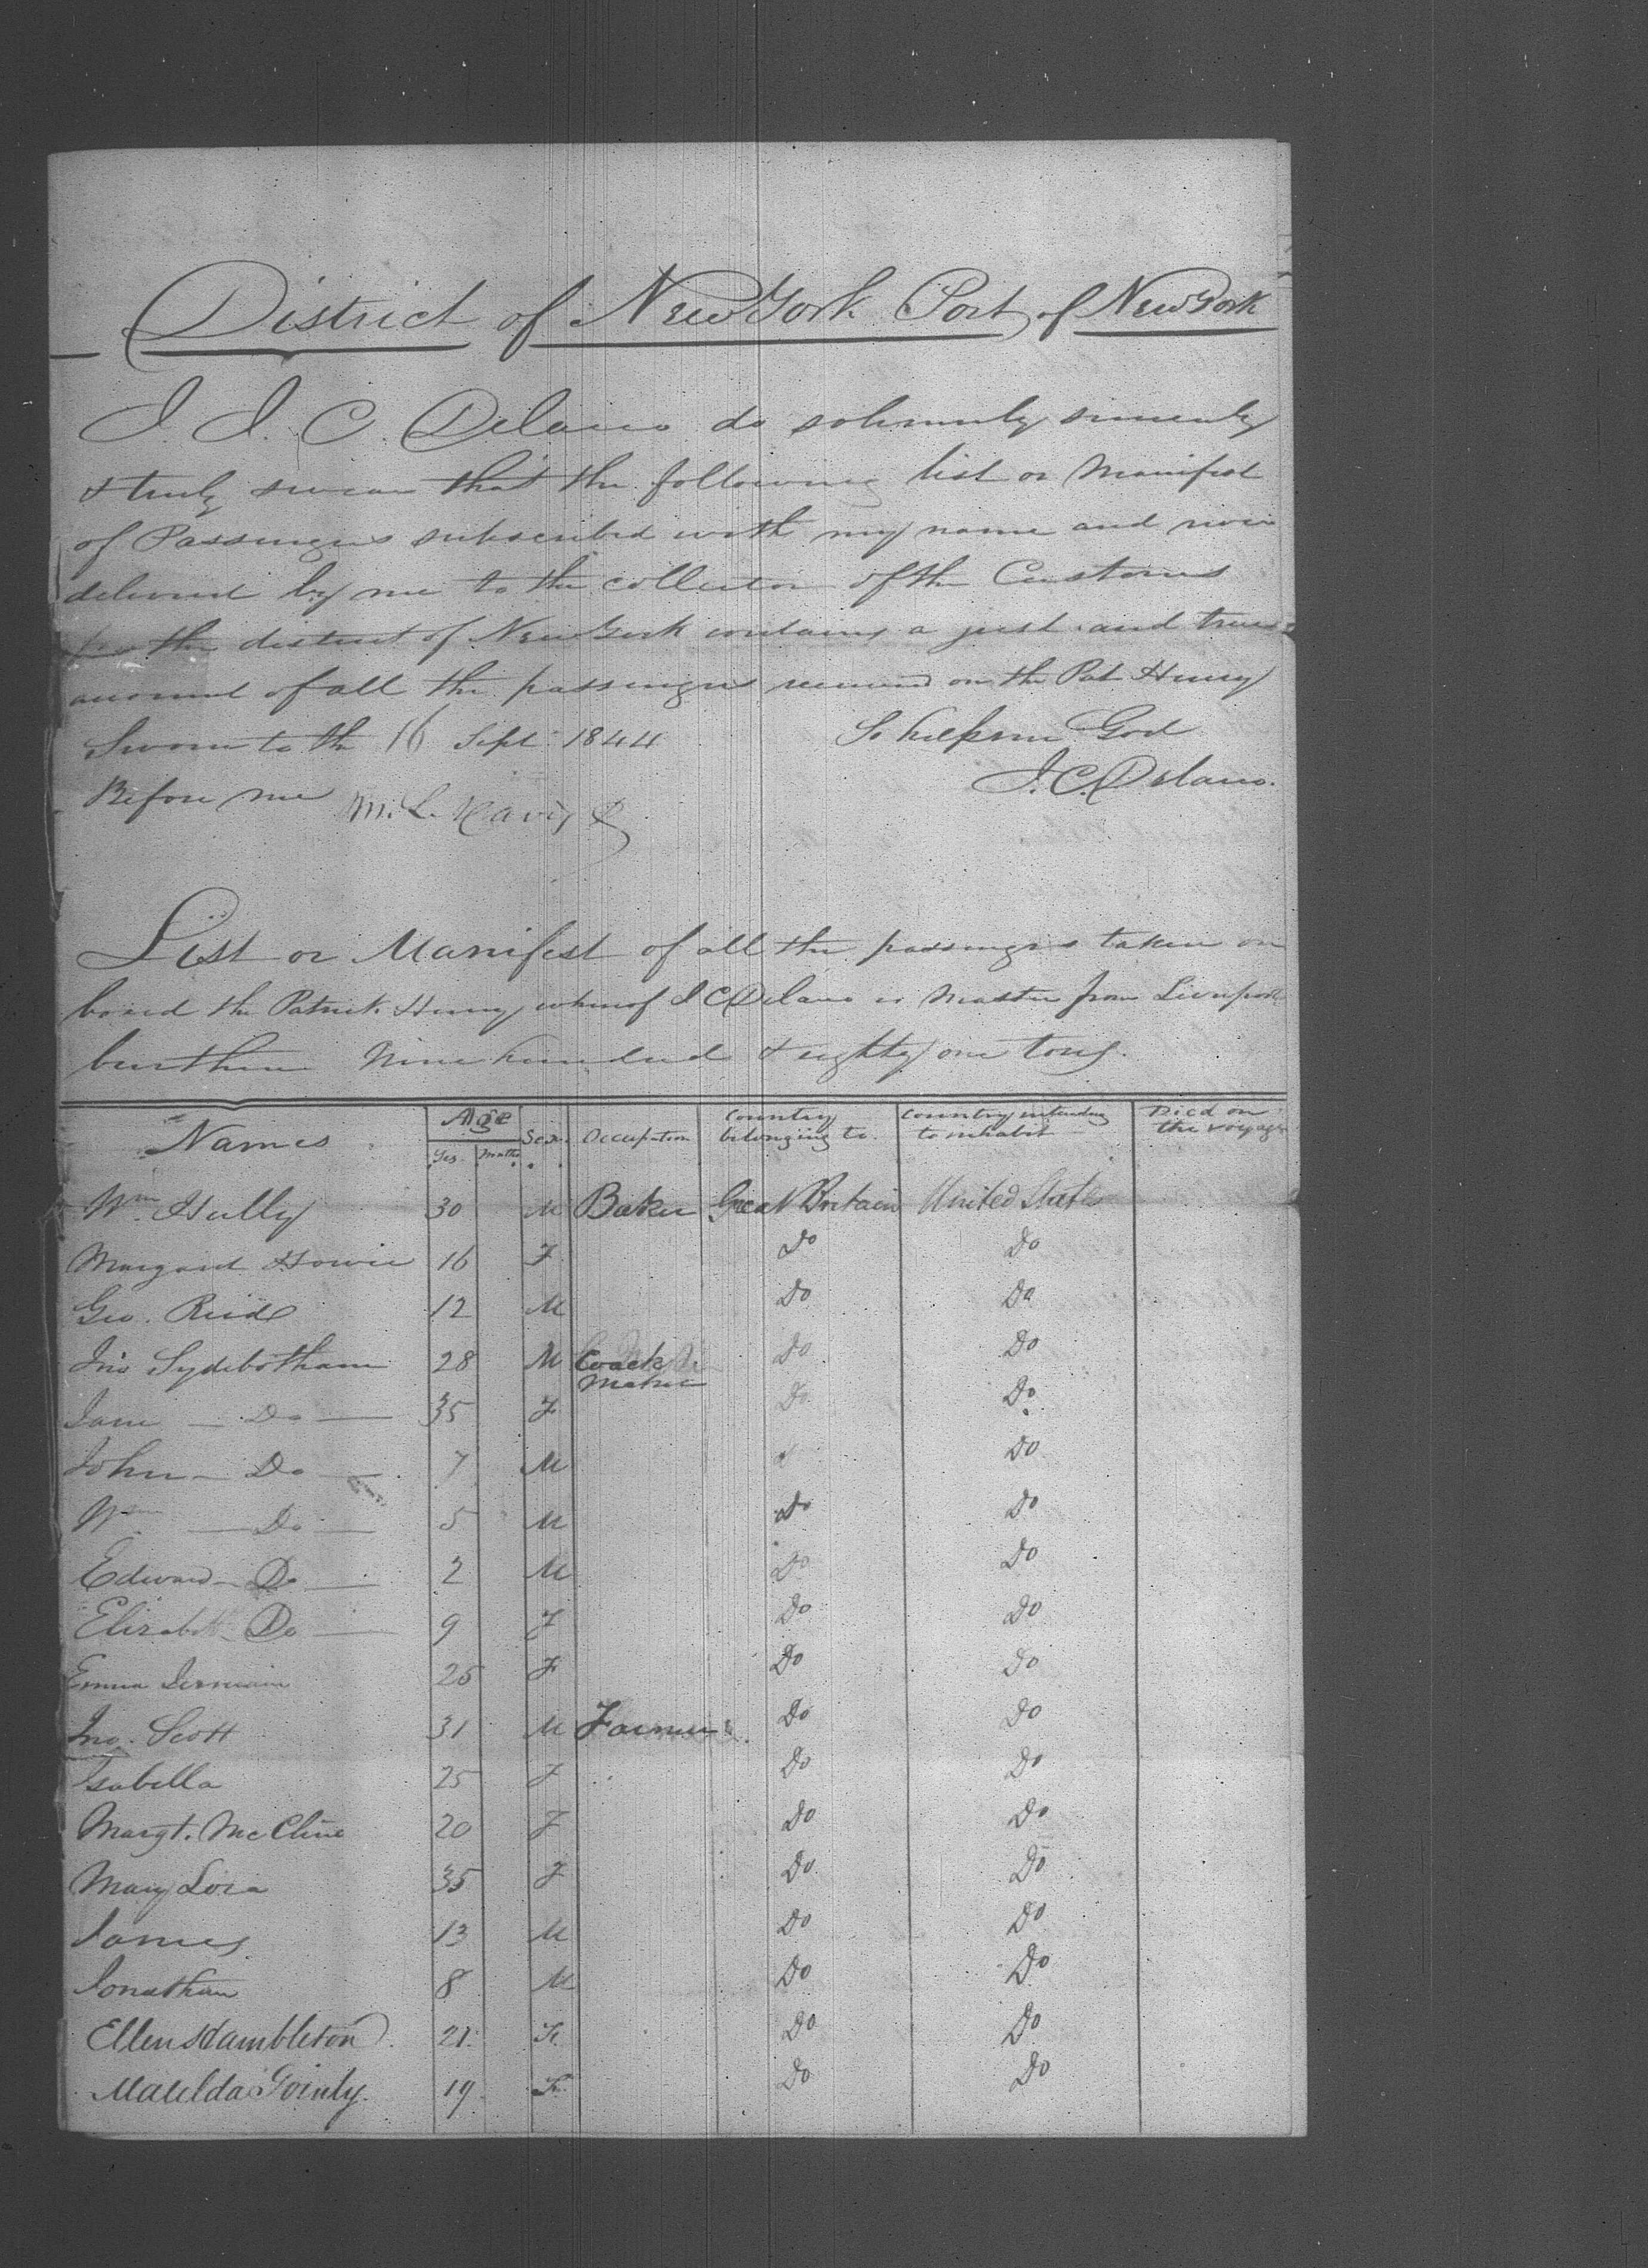 District of New York Port of New York
I. J. C. Delano do solemnly sincerely
& truly swear that the following list or Manifest
of Passengers subscribed with my name and now
delivered by me to the collector of the Customs
for the district of New York contains a just and true
account of all the passengers received on the Pat Henry
Sworn to the 16 Sept 1844 So help me God
Before me M. L. Davis J. C. Delano.
List or Manifest of all the passengers taken on
board the Patrick Henry whereof J C Delano is Master from Liverpool
burthen Nine hundred & eighty one tons.
Names Age Sex Occupation Country belonging to Country intending to inhabit Died on the voyage
Yrs. Mnths
Wm Hully 30 M Baker Great Britain United States
Margaret Howie 16 F Do Do
Geo. Reid 12 M Do Do
Jno Sydebotham 28 M Coach Maker Do Do
Jane — Do — 35 F Do Do
John — Do — 7 M Do
Wm — Do — 5 M Do Do
Edward — Do — 2 M Do Do
Elizabeth Do — 9 F Do Do
Emma 25 F Do Do
Jno. Scott 31 M Farmer Do Do
Isabella 25 F Do Do
Margt. McCline 20 F Do Do
Mary 35 F Do Do
James 13 M Do Do
Jonathan 8 M Do Do
Ellen Hambleton 21 F. Do Do
Matilda 19 F. Do Do